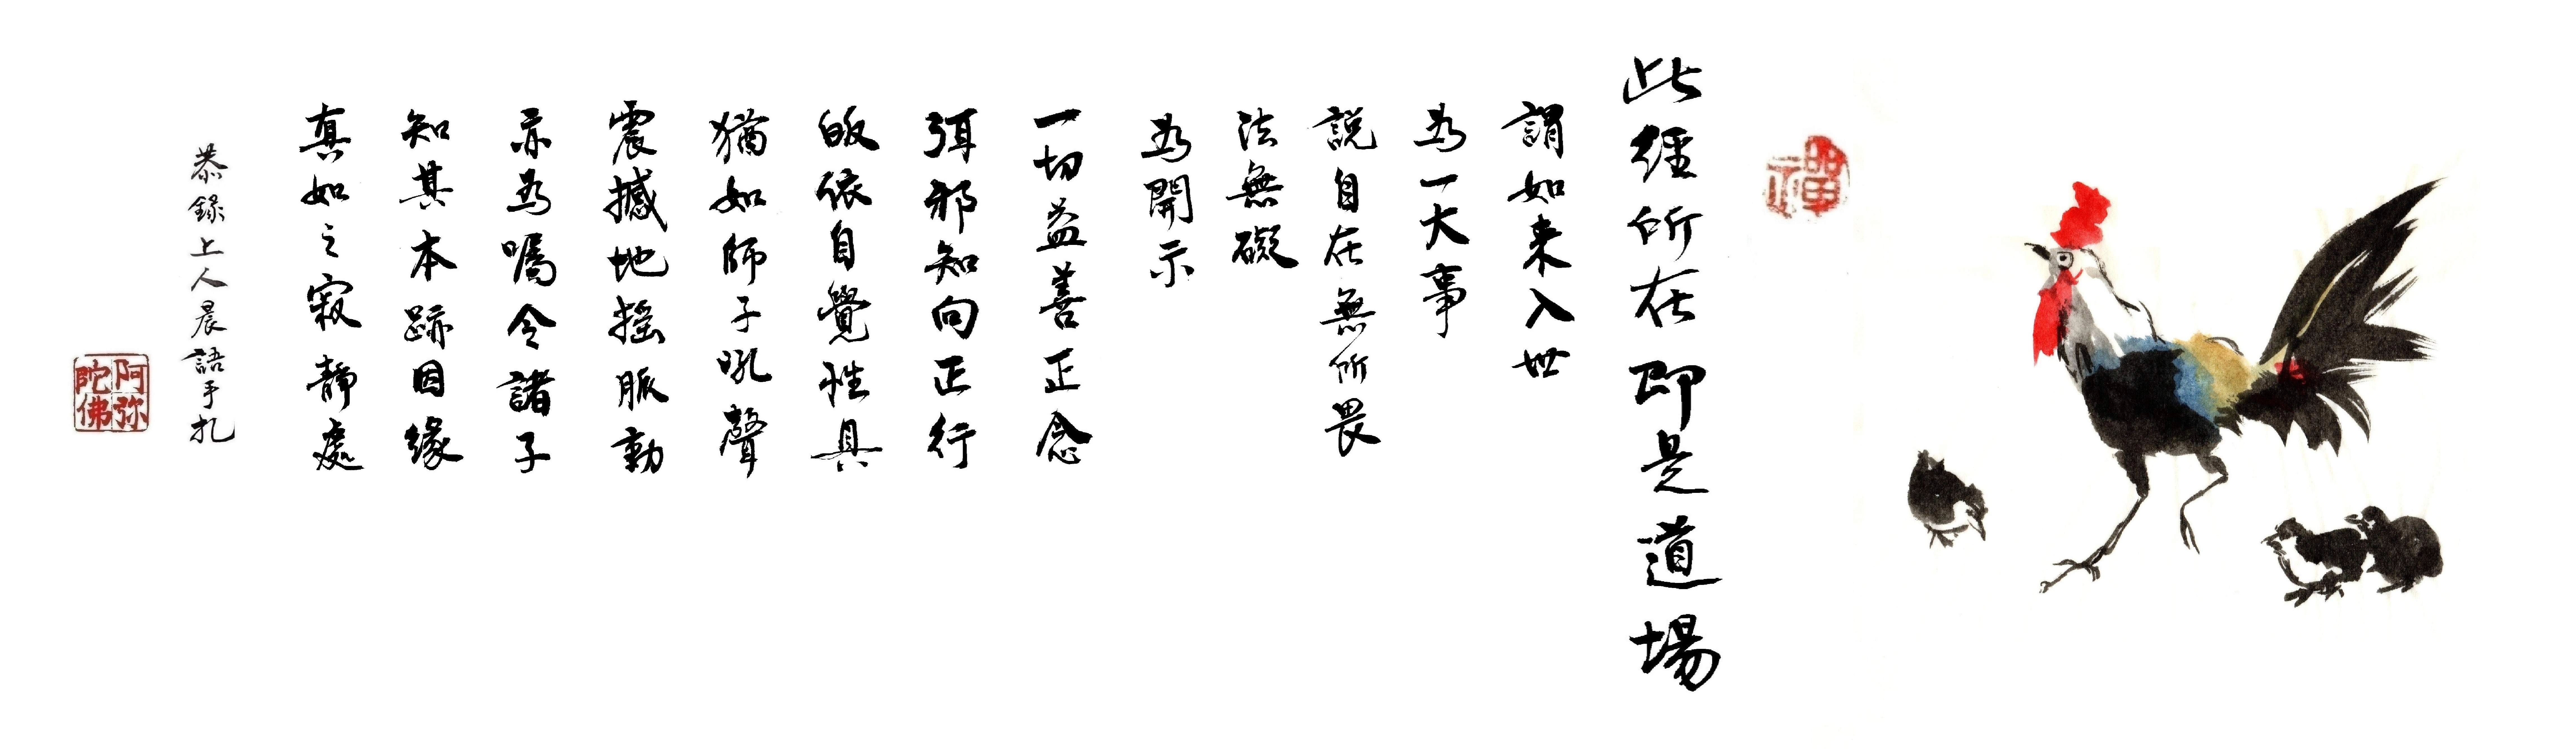 禪
此經所在即是道場
謂如来入世
為一大事
說自在無所畏
法無礙
為開示
一切益善正念
弭邪知向正行
皈依自覺性具
猶如師子吼聲
震撼地搖脈動
亦為囑令諸子
知其本跡因緣
真如之寂靜處
恭錄上人晨語手扎
阿弥
陀佛